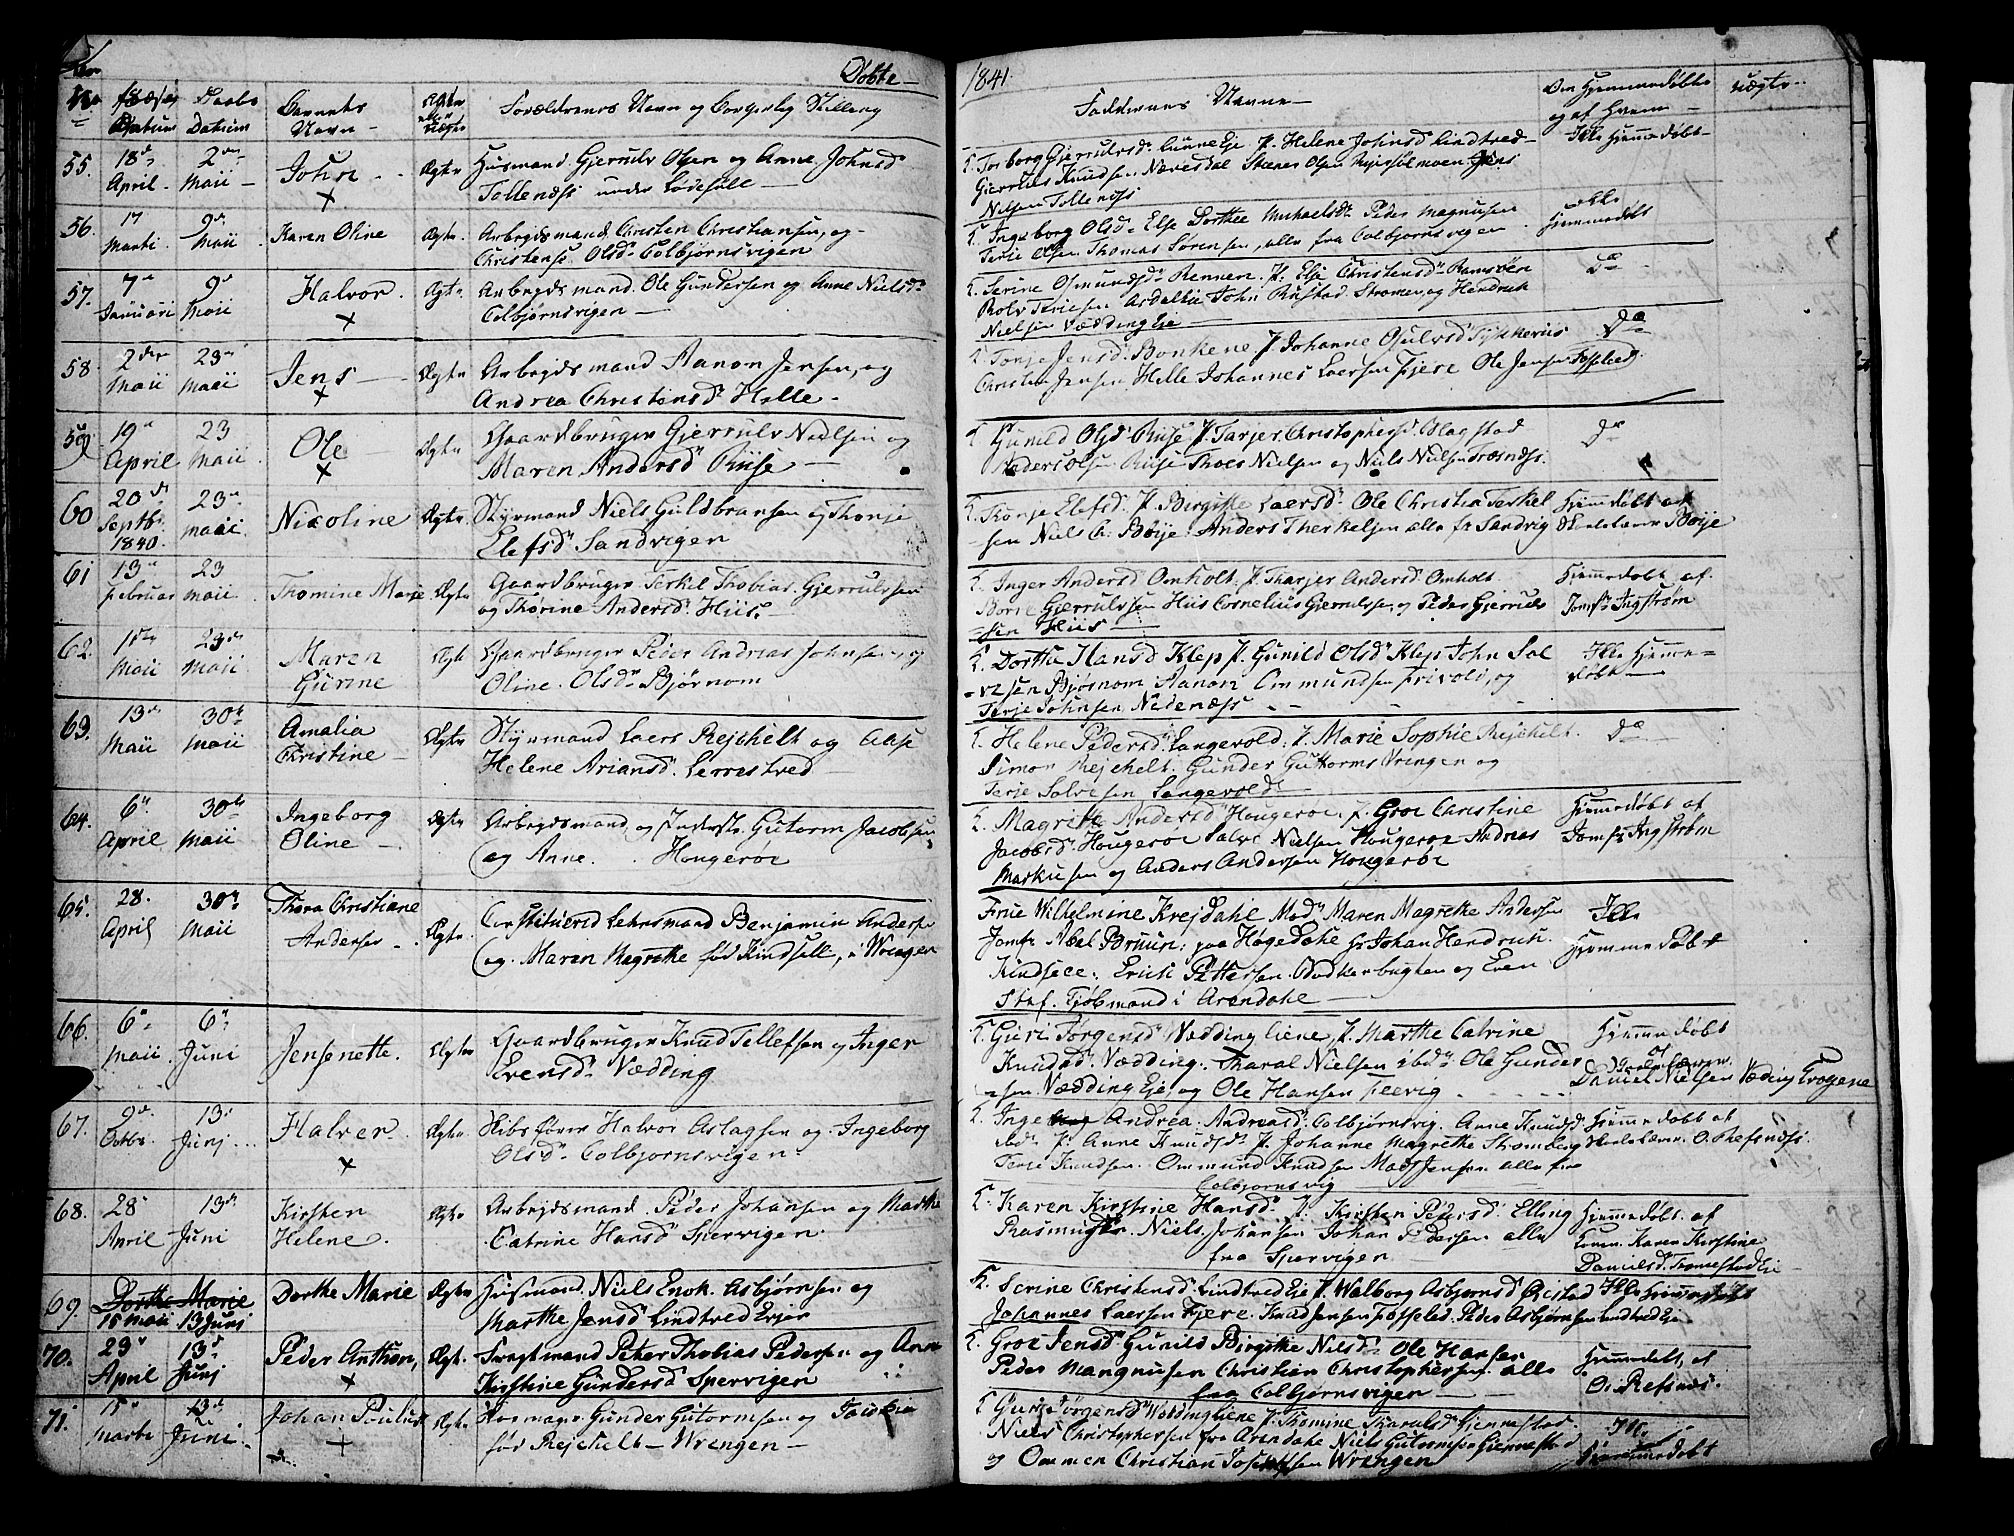 Døbte
1841.
No Fødsels Datum
Daabs Datum
Barnets Navn
Ægte eller uægte
Forældrenes Navn og Borgerlig Stilling
Faddernes Navne
Om Hjemmedøbte og af Hvem
uægte
55. 18de April 2den Maii John Ægte
Huusmand Gjerrulv Olsen og Anne Johnsd
Tollenæss under Løddesøll
F. Torborg Gjerrulvsd P. Helene Johnsd Lindtved
Gjerrulv Knudsen Næverdal Olsen Jens
Nielsen Tollenæss
Ikke Hjemmedøbt
56. 17 Marti 9de Maii Karen Oline Ægte
Arbejdsmand Christen Christiansen, og
Christense Olsd Colbjørnsvigen
F. Ingeborg Olsd Else Dorthee Michaelsd Peder Magnusen
Terje Olsen Thomas Sørensen, alle fra Colbjørnsvigen
Ikke Hjemmedøbt
57. 7de Januari 9de Maii Halvor Ægte
Arbejdsmand Ole Gundersen og Anne Nielsd
Colbjørnsvigen
F. Serine Osmundsd Rennen P. Else Christensd
Rolv Teriesen Asdal John Rustad Strømen, og Hendrik
Nielsen Vædding Eje
Do
58. 2den Maii 23de Maii Jens Ægte
Arbejdsmand Aanon Jensen, og
Andrea Christensd Helle
F. Tonje Jensd Bonkene P. Johanne
Christen Jensen Helle Johannes Laersen Fjere Ole Jensen Fosseled
Do
59. 19de April 23 Maii Ole Ægte
Gaardbruger Gjerrulv Nielsen og
Maren Andersd Riise
F. Gunild Olsd Riise P. Tarjer Christophersd Blagstad
Anders Olsen Riise Thoes Nielsen og Niels Nielsen Trøsnæs
Do
60 20de Septbr 1840. 23de Maii Nicoline Ægte
Styrmand Niels Guldbransen og Thonje
Elefsd Sandvigen
F. Tronje Elefsd P. Birgitte Laersd Ole Christian Terkel
sen Niels C. Bøije Anders Therkelsen alle fr Sandvig
Hjemmedøbt af Skolelærer Bøije
61 13de Februar 23 Maii Thomine Marie Ægte
Gaardbruger Terkel Thobias Gjerrulvsen
og Thorine Andersd Hiis
F. Inger Andersd Omholt P. Tharjer Andersd Omholt
Børre Gjerrulvsen Hiis Cornelius Gjerrulvsen, og Peder Gjerruls
sen Hiis
Hjemmedøbt af Jomfr Ingstrøm
62. Maii 23de Maii Maren Gurine Ægte
Gaardbruger Peder Andreas Johnsen og
Oline Olsd Bjørnom
F. Dorthe Hansd Klep P. Gunild Olsd Klep John Sal
vesen Bjørnom Aanon Ommundsen Frivold, og
Terje Johnsen Nedenæss
Ikke Hjemmedøbt
63. 13de Maii 30te Maii Amalia Christine Ægte
Styrmand Laers Rejchelt og Aase
Helene Ariansd Lerrestved
F. Helene Pedersd Langevold P. Marie Sophie Rejchelt
Simon Rejchelt Gunder Guttorms Wrengen og
Terje Salvesen Langevold
Do
64. 6te April 30te Maii Ingeborg Oline Ægte
Arbejdsmand og Inderst Gutorm Jacobsen
og Anne Hougerøe
F. Magrethe Andersd Hougerøe P. Groe Christine
Jacobsd Hougerøe Salve Nielsen Hougerøe Andreas
Markusen og Anders Andersen Hougerøe
Hjemmedøbt af Jomfr Ingstrøm
65. 28. April 30te Maii Thora Christiane Andersen Ægte
Constituered Lehnsmand Benjamin Andersen
og Maren Magrethe fød Kindsell, i Wrengen
Frue Wilhelmine Krejdahl Mad Maren Magrethe Andersen
Jomfr Abel Bruun; paa Høgedahl Hr Johan Hendrich
Kindsece; Erich Pettersen og Even
Staf. Tjøbmand i Arendahl
Ikke Hjemmedøbt
66. 6te Maii 6te Juni Jensenette Ægte
Gaardbruger Knud Tellefsen og Inger
Evensd Vædding
F. Gjeri Jørgensd Vædding Liene, P. Marthe Catrine
Knudsd Vædding Tharal Nielsen ibd Ole Gunder
sen Vædding Eje, og Ole Hansen Feevig
Hjemmedøbt af Skolelærer Daniel Nielsen Væding Trogene
67. 9de Octbr 13de Junj Halver Ægte
Skibsfører Halvor Aslagsen og Ingeborg
Olsd Colbjørnsvigen
F. Inge Andrea Andreasd Colbjørnsvig Anne Knudsd
P. Anne Knudsd P. Johanne Magrethe Stromberg
Terje Knudsen Ommund Knudsen Mads Jensen alle fra
Colbjørnsvig
Hjemmedøbt af Skolelærer O. Refsnæs
68. 28 April 13de Juni Kirsten Helene Ægte
Arbejdsmand Peder Johansen og Marthe
Catrine Hansd Spervigen
F. Karen Kirstine Hansd P. Kirsten Pedersd Elling
Rasmusen Niels Johansen Johan Pedersen alle
fra Spervigen
Hjemmedøbt af Karen Kirstine Danielsd Tromestad Eie
69. Dorthe Marie 15 Maii 13 Junj Dorthe Marie Ægte
Huusmand Niels Enok Asbjørnsen og
Marthe Jensd Lindtved Ejer
F. Serine Christensd Lindtved Eie P. Walborg Asbjørnsd Øiestad
Johannes Laersen Fjere Knud Jensen Fosseled Peder Asbjørnsen Lindtved Eie
Ikke Hjemmedøbt
70. 23de April 13de Junj Peder Anthon Ægte
Fragtmand Peter Thobias Pedersen og Anne
Kirstine Gundersd Spervigen
F. Groe Jensd Gunild Birgithe Nilsd Ole Hansen
Peder Mangnusen Christian Christophersen alle
fra Colbjørnsvigen
Hjemmedøbt af O. Refsnæs
71. 15de Marti 13de Juni Johan Poulus Ægte
Gunder Gutormsen og
fød Rejchelt Wrengen
F. Gurje Jørgensd Vædding Liene P. Thomine Tharalsd Gjennestad
Niels Christophersen fra Arendahl Niels Gutormsen Gjennestad
og Ommen Christian Wrengen
Ikke Hjemmedøbt